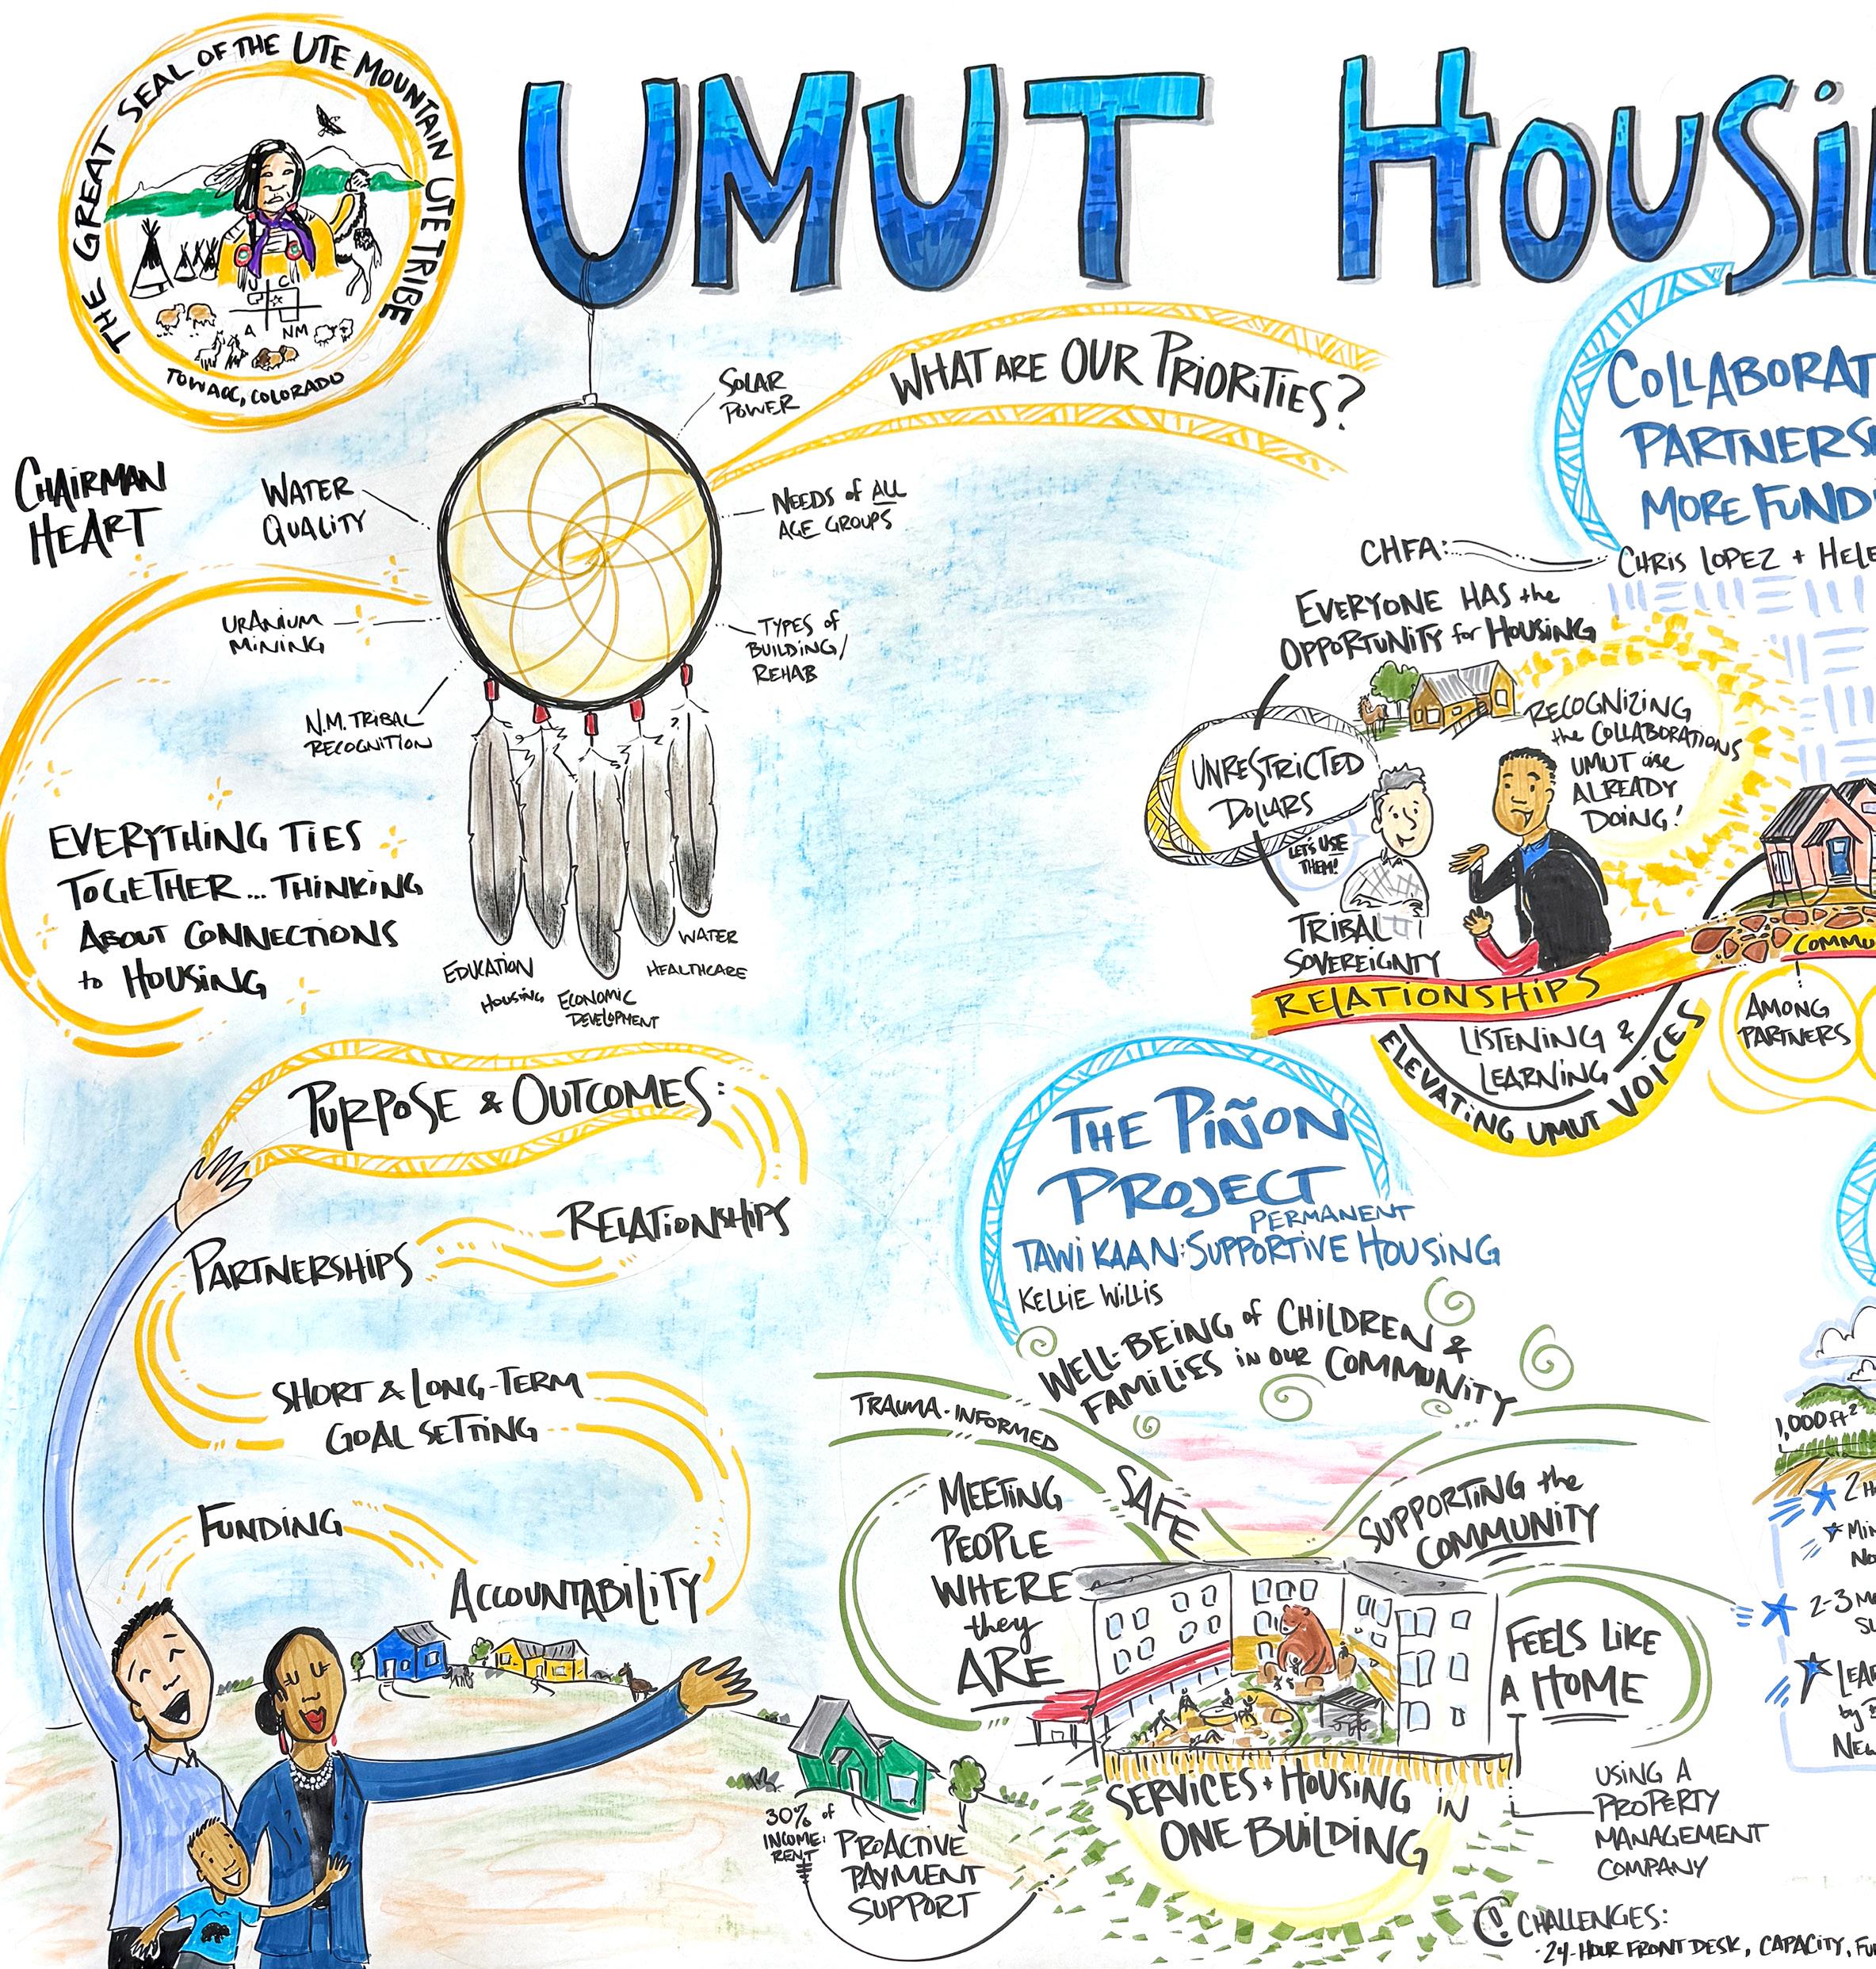 THE GREAT SEAL OF THE UTE MOUNTAIN UTE TRIBE
U C
A NM
TOWAOC, COLORADO
UMUT HOUSI
WHAT ARE OUR PRIORITIES?
CHAIRMAN
HEART
WATER
QUALITY
URANIUM
MINING
N.M. TRIBAL
RECOGNITION
SOLAR
POWER
NEEDS of ALL
AGE GROUPS
TYPES of
BUILDING/
REHAB
EDUCATION
HOUSING
ECONOMIC
DEVELOPMENT
HEALTHCARE
WATER
EVERYTHING TIES
TOGETHER... THINKING
ABOUT CONNECTIONS
to HOUSING
COLLABORAT
PARTNERS
MORE FUND
CHFA:
CHRIS LOPEZ + HELE
EVERYONE HAS the
OPPORTUNITY for HOUSING
UNRESTRICTED
DOLLARS
LET'S USE
THEM!
TRIBAL
SOVEREIGNTY
RECOGNIZING
the COLLABORATIONS
UMUT are
ALREADY
DOING!
RELATIONSHIPS
COMMU
LISTENING &
LEARNING
ELEVATING UMUT VOICES
AMONG
PARTNERS
PURPOSE & OUTCOMES:
RELATIONSHIPS
PARTNERSHIPS
SHORT & LONG-TERM
GOAL SETTING
FUNDING
ACCOUNTABILITY
THE PIÑON
PROJECT
PERMANENT
TAWI KAAN: SUPPORTIVE HOUSING
KELLIE WILLIS
WELL-BEING of CHILDREN &
FAMILIES IN OUR COMMUNITY
TRAUMA-INFORMED
SAFE
SUPPORTING the
COMMUNITY
MEETING
PEOPLE
WHERE
they
ARE
FEELS LIKE
A HOME
SERVICES + HOUSING IN
ONE BUILDING
USING A
PROPERTY
MANAGEMENT
COMPANY
30% of
INCOME:
RENT
PROACTIVE
PAYMENT
SUPPORT
CHALLENGES:
· 24-HOUR FRONT DESK, CAPACITY, FU
1,000 ft²
2 H
MIN
NO
2-3 M
SU
LEA
by
NEW